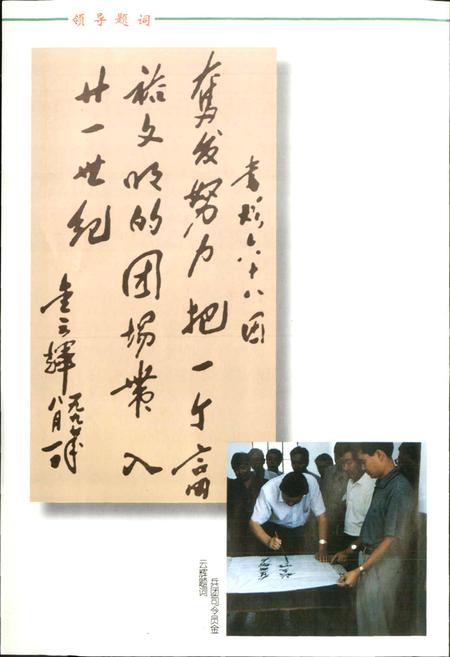 领导题词
书赠六十八团
奮发努力把一个富
裕文明的团场带入
廿一世纪
金云輝
八月
兵团司令员金
云辉题词